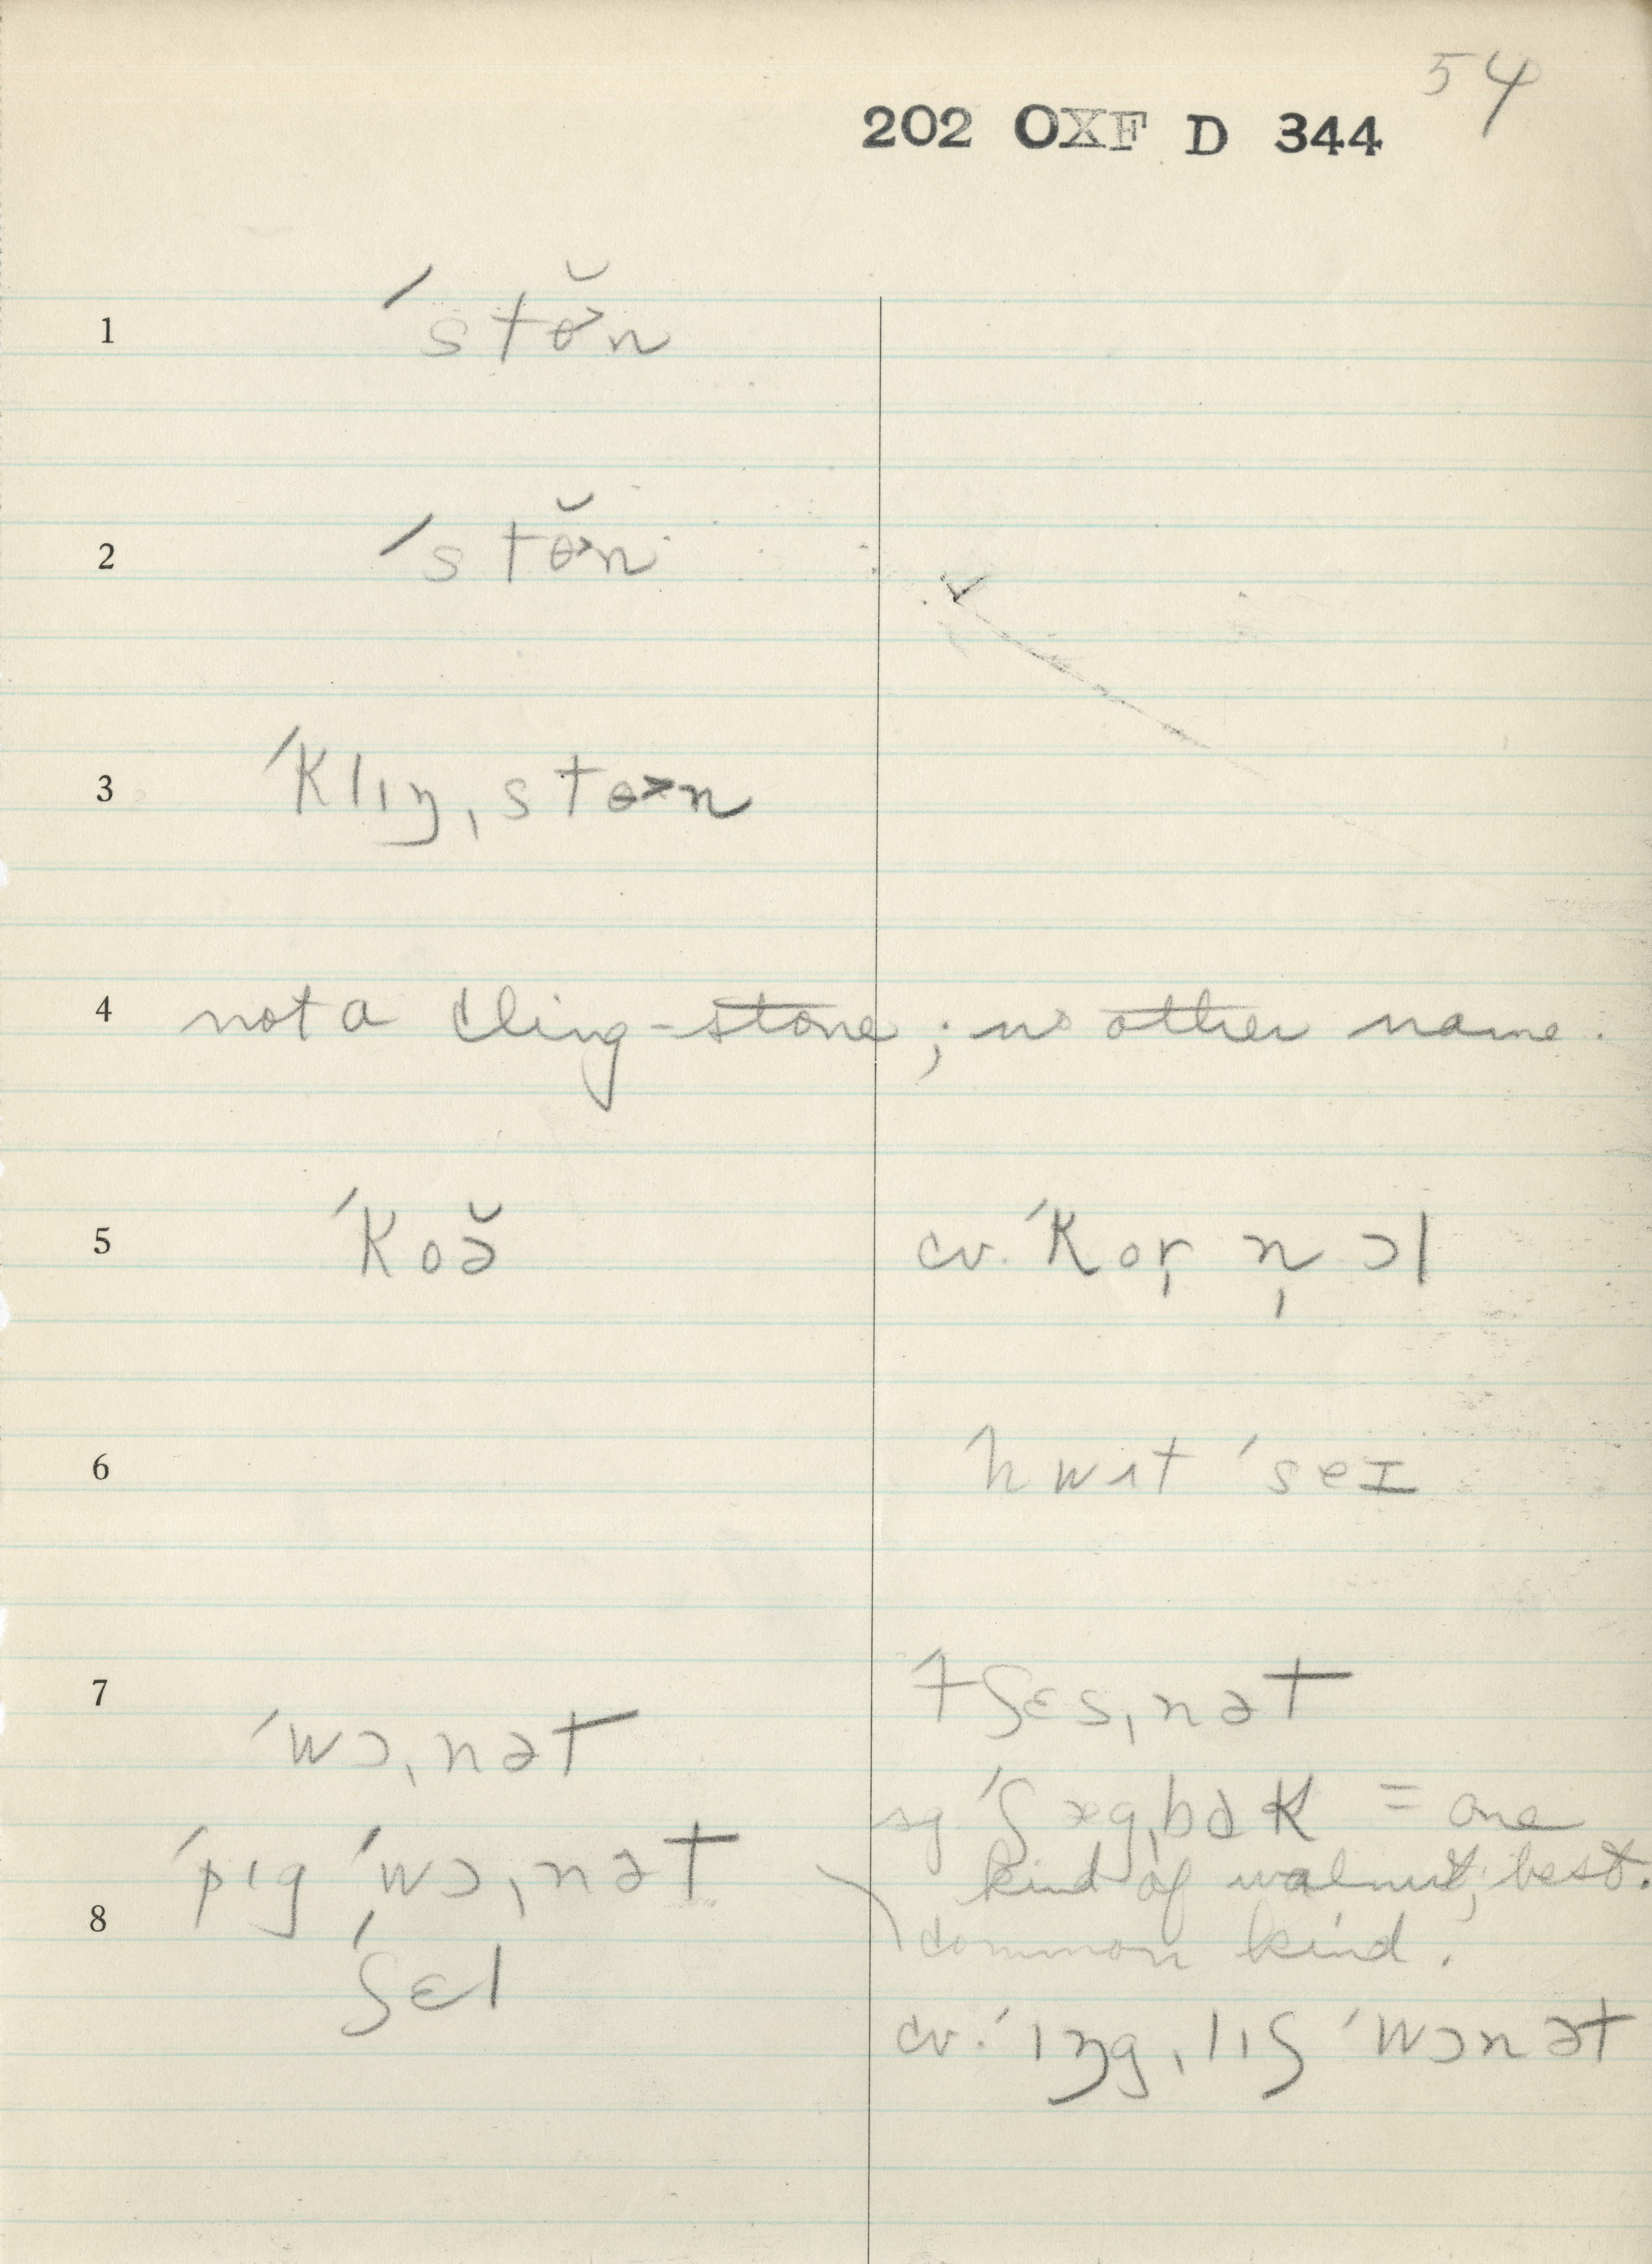 54
202 OXF D 344
1 ˈstɵ̆˃n
2 ˈstɵ̆˃n
3 ˈklɪŋˌstɵ˃n
4 not a cling-stone; no other name.
5 ˈkoə̆ cv. ˈkor̩ n̩ ɔl
6 hwɪt ˈseɪ
7 ˈtʃɛsˌnət
ˈwɔˌnət
sg ˈʃægˌbɑk = one
ˈpɪg ˈwɔˌnət kind of walnut; best.
8 common kind.
ˈʃɛl
cv. ˈɪŋgˌlɪʃ ˈwɔnət